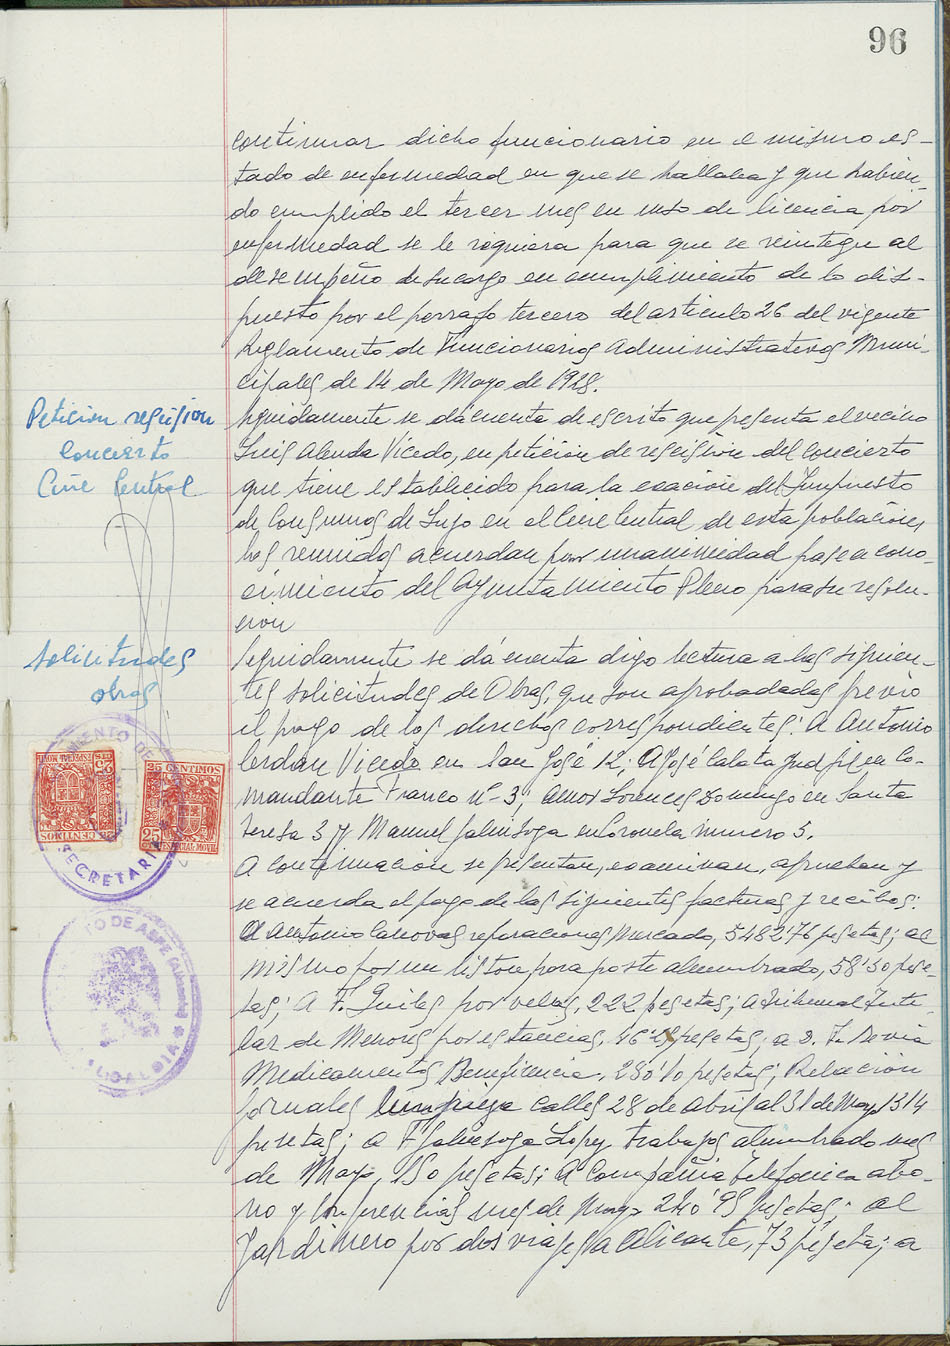 96
continuar dicho funcionario en el mismo es-
tado de enfermedad en que se hallaba y que habien-
do cumplido el tercer mes en uso de licencia por
enfermedad se le requiera para que se reintegre al
desempeño de su cargo en cumplimiento de lo dis-
puesto por el parrafo tercero del articulo 26 del vigente
Reglamento de Funcionarios Administrativos Muni-
cipales de 14 de Mayo de 1928.
Petición rescision
Concierto
Cine Central
Seguidamente se dá cuenta de escrito que presenta el vecino
Luis Alenda Vicedo, en petición de rescisión del Concierto
que tiene establecido para la exación del Impuesto
de Consumos de Lujo en el Cine Central de esta población,
los reunidos acuerdan por unanimidad pase a cono-
cimiento del Ayuntamiento Pleno para su resolu-
cion
Solicitudes
obras
Seguidamente se dá cuenta digo lectura a las siguien-
tes solicitudes de Obras, que son aprobadas previo
el pago de los derechos correspondientes: A Antonio
Cerdán Vicedo en San José 12; A José Calatayud en Co-
mandante Franco nº 3; Amor Lorences Domingo en Santa
Teresa 3 y Manuel Galinsoga en Coronela numero 5.
A continuación se presentan, examinan, aprueban y
se acuerda el pago de las siguientes facturas y recibos:
A Antonio Canovas reparaciones Mercado, 5482'76 pesetas; al
mismo por un liston para poste alumbrado, 58'50 pese-
tas; A F. Guiles por velas, 222 pesetas; a Tribunal Tute-
lar de Menores por estancias, pesetas; a D. F.
Medicamentos Beneficencia, 280'10 pesetas; Relación
jornales limpieza calles 28 de Abril al 31 de Mayo 1314
pesetas; a F Galinsoga López trabajos alumbrado mes
de Mayo, 150 pesetas; A Compañia Telefonica abo-
no y conferencias mes de Mayo 240'95 pesetas; al
Jardinero por dos viajes a Alicante, 73 pesetas; a
25 CENTIMOS
ESPECIAL MOVIL
25 CENTIMOS
ESPECIAL MOVIL
SECRETARIA
TO DE ASPE (Alicante)
ALCALDIA